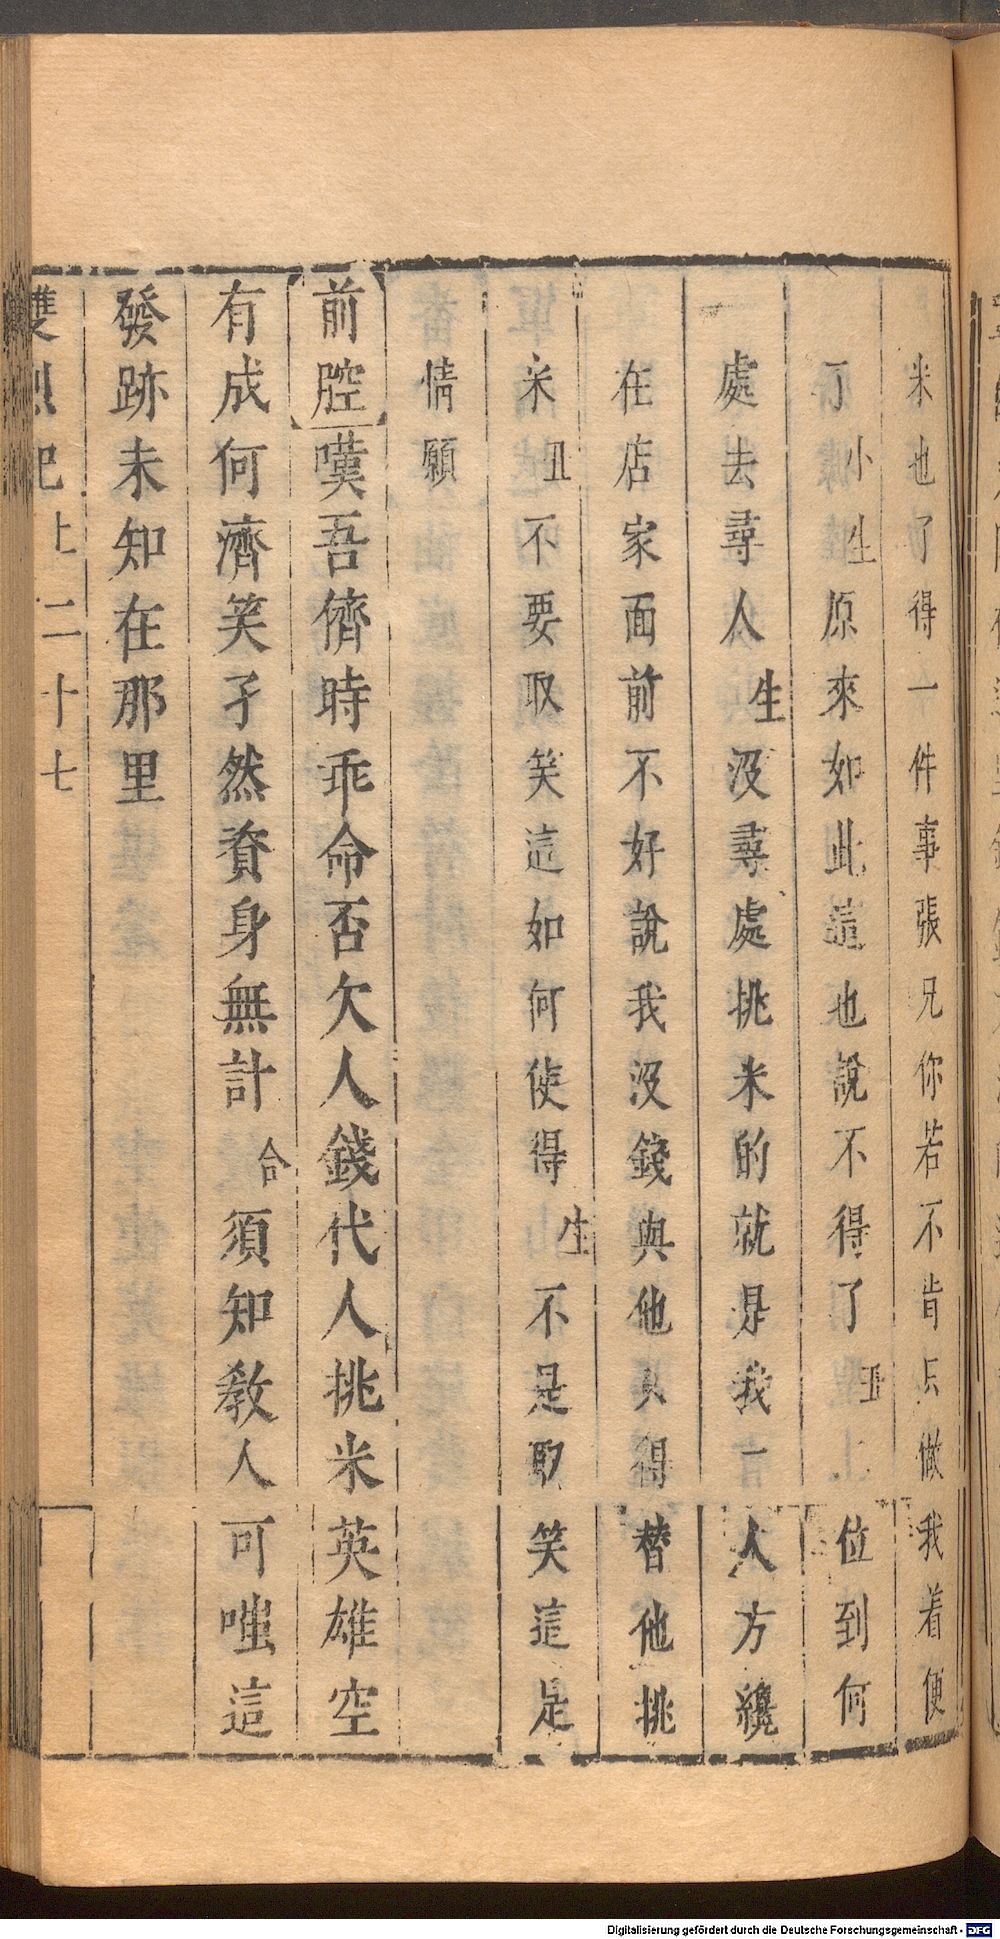 米也了得一件事張兄你若不肯只做我着便
了小生原來如此這也說不得了丑位到何
處去尋人生沒尋處挑米的就是我一人方纔
在店家面前不好說我沒錢與他只得替他挑
米丑不要取笑這如何使得生不是取笑這是
情願
前腔嘆吾儕時乖命否欠人錢代人挑米英雄空
有成何濟笑孑然資身無計合須知教人可嗤這
發跡未知在那里
雙烈記上二十七
Digitalisierung gefördert durch die Deutsche Forschungsgemeinschaft - DFG